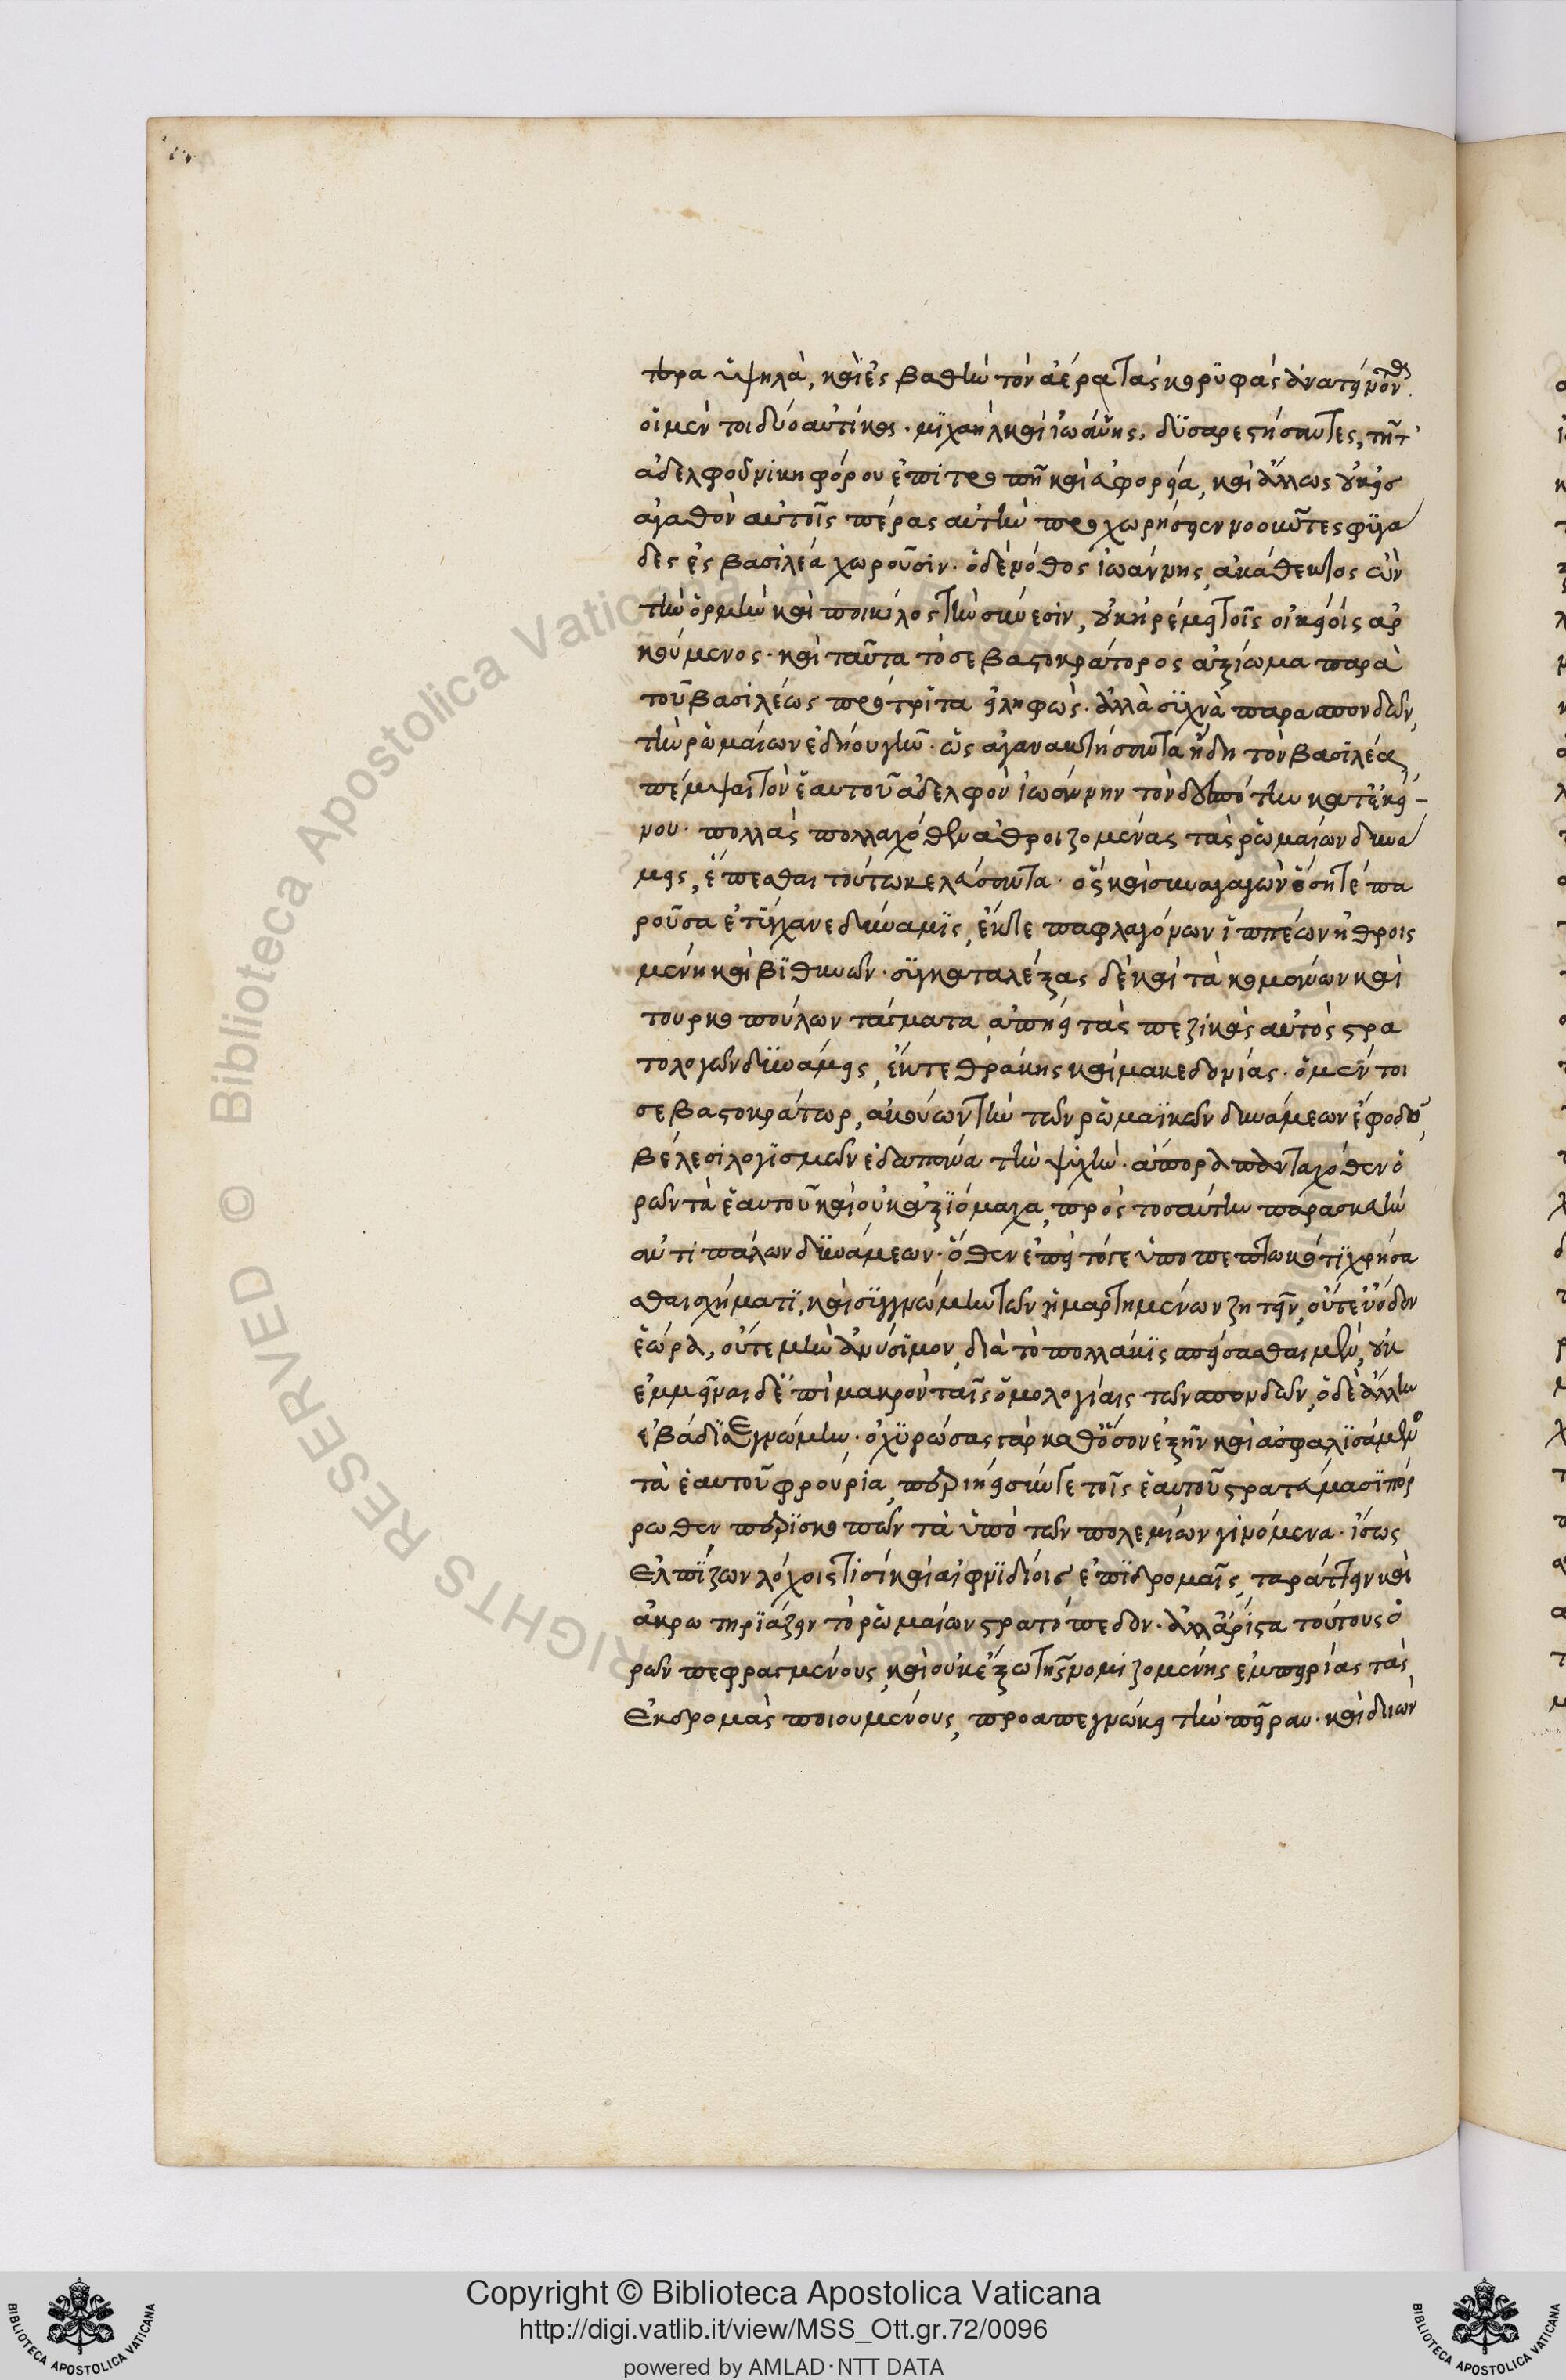 πτερα ὑψηλὰ, καὶ ἐς βαθὺν τὸν ἀέρα τὰς κορυφὰς ἀνατείνοντα.
οἱ μέν τοι δύο αὐτίκα. μιχαὴλ καὶ ἰωάννης, δυσαρεστήσαντες, τῇ τ
ἀδελφοῦ νικηφόρου ἐπιτροπῇ καὶ ἀφορεία, καὶ ἄλλως οὐκ εἰσ
ἀγαθὸν αὐτοῖς πέρας αὐτὴν προχωρήσειν νοοῦντες φυγά
δες ἐς βασιλέα χωροῦσιν. ὁ δὲ νόθος ἰωάννης, ἀκάθεκτος ὢν
τὴν ὁρμὴν καὶ ποικίλος τὴν σύνεσιν, οὐκ ἠρέμει τοῖς οἰκείοις ἀρ
κούμενος. καὶ ταῦτα τὸ σεβαστοκράτορος ἀξίωμα παρὰ
τοῦ βασιλέως πρότριτα εἰληφώς. ἀλλὰ συχνὰ παρασπονδῶν,
τὴν ῥωμαίων ἐδῄου γῆν. ὡς ἀγανακτήσαντα ἤδη τὸν βασιλέα,
πέμψαι τὸν ἑαυτοῦ ἀδελφὸν ἰωάννην τὸν δεσπότην κατ' ἐκεί-
νου. πολλὰς πολλαχόθεν ἀθροιζομένας τὰς ῥωμαίων δυνά
μεις, ἕπεσθαι τούτω κελεύσαντα. ὃς καὶ συναγαγὼν ὅση τε πα
ροῦσα ἐτύγχανε δύναμις, ἔκ τε παφλαγόνων ἱππέων ἠθροις
μένη καὶ βιθυνῶν. συγκαταλέξας δὲ καὶ τὰ κομάνων καὶ
τουρκοπούλων τάγματα, ἀπῄει τὰς πεζικὰς αὐτὸς στρα
τολογῶν δυνάμεις, ἔκ τε θράκης καὶ μακεδονίας. ὁ μέν τοι
σεβαστοκράτωρ, ἀκούων τὴν τῶν ῥωμαϊκῶν δυνάμεων ἔφοδον,
βέλεσι λογισμῶν ἐδαπάνα τὴν ψυχὴν. ἄπορα πανταχόθεν ὁ
ρῶν τὰ ἑαυτοῦ καὶ οὐκ ἀξιόμαχα, πρὸς τοσαύτην παρασκευὴν
ἀντιπάλων δυνάμεων. ὅθεν ἐπεὶ τότε ὑποπεπτωκότι χρήσα
σθαι σχήματι, καὶ συγγνώμην τῶν ἡμαρτημένων ζητεῖν, οὔτ' εὔοδον
ἑώρα, οὔτε μὴν ἀνύσιμον, διὰ τὸ πολλάκις σπείσασθαι μὲν, οὐκ
ἐμμεῖναι δ' ἐπὶ μακρὸν ταῖς ὁμολογίαις τῶν σπονδῶν, ὁ δὲ ἄλλην
ἐβάδιζε γνώμην. ὀχυρώσας γὰρ καθ' ὅσον ἐξῆν καὶ ἀσφαλισάμενος
τὰ ἑαυτοῦ φρούρια, περιῄει σύν τε τοῖς ἑαυτοῦ στρατεύμασι πόρ
ρωθεν περισκοπῶν τὰ ὑπὸ τῶν πολεμίων γινόμενα. ἴσως
ἐλπίζων λόχοις τισὶ καὶ αἰφνιδίοις ἐπιδρομαῖς, ταράττειν καὶ
ἀκρωτηριάζειν τὸ ῥωμαίων στρατόπεδον. ἀλλ' ἄριστα τούτους ὁ
ρῶν πεφραγμένους, καὶ οὐκ ἔξω τῆς νομιζομένης ἐμπειρίας τὰς
ἐκδρομὰς ποιουμένους, προαπεγνώκει τὴν πεῖραν. καὶ δεινῶν
Copyright © Biblioteca Apostolica Vaticana
http://digi.vatlib.it/view/MSS_Ott.gr.72/0096
powered by AMLAD·NTT DATA